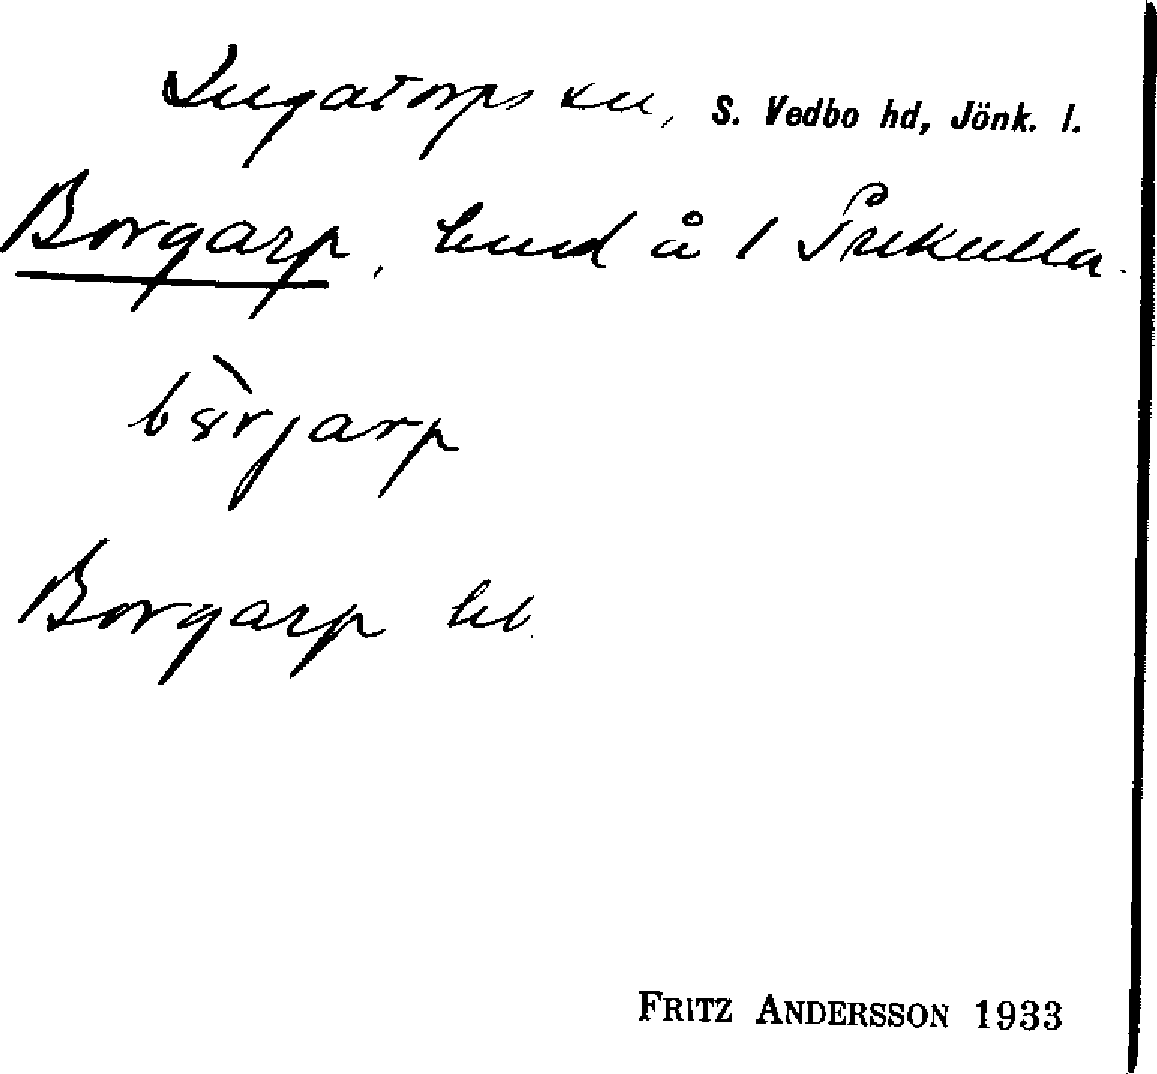 Ingatorps sn, S. Vedbo hd, Jönk. l.
Borgarp, lund å 1 Pukulla.
börjarp
Borgarp hb.
FRITZ ANDERSSON 1933